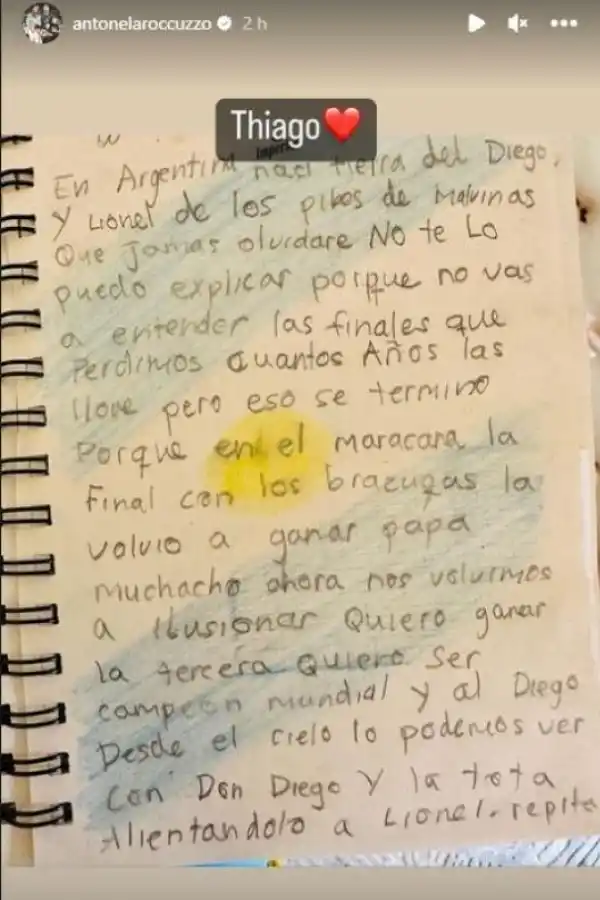 antonelaroccuzzo 2 h
Thiago
En Argentina naci tierra del Diego,
Y Lionel de los pibes de Malvinas
Que Jamas olvidare No te Lo
puedo explicar porque no vas
a entender las finales que
Perdimos Cuantos Años las
llore pero eso se termino
Porque en el maracana la
Final con los brazucas la
volvio a ganar papa
muchacho ahora nos volvimos
a ilusionar Quiero ganar
la tercera Quiero Ser
campeon mundial y al Diego
Desde el cielo lo podemos ver
Con Don Diego Y la tota
Alientandolo a Lionel. repite